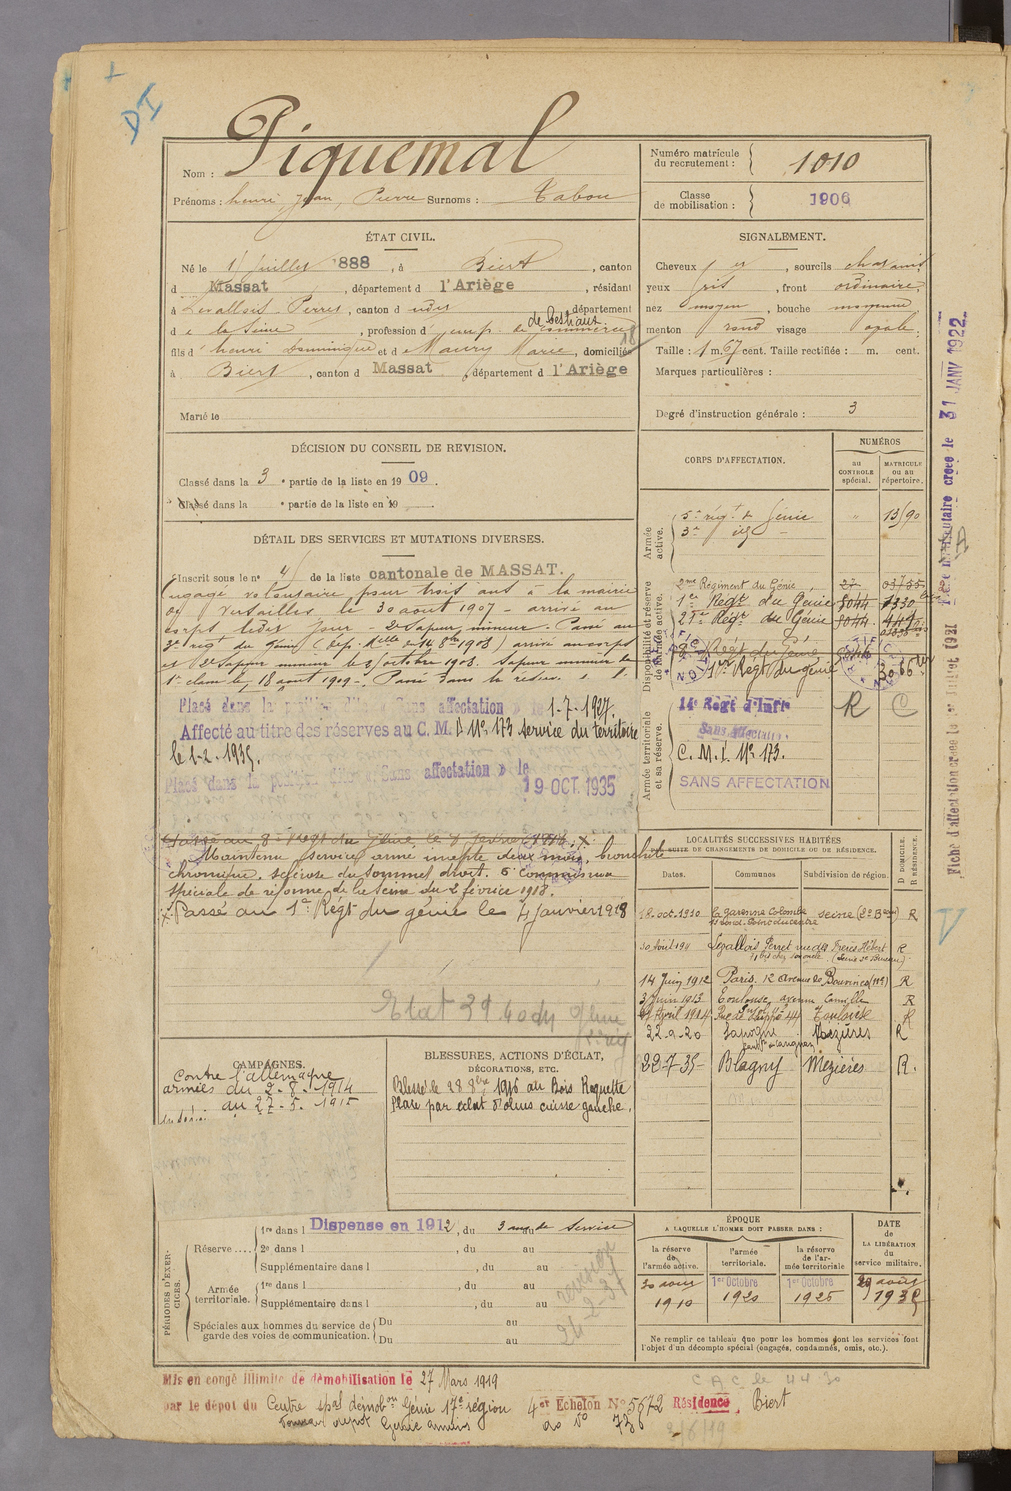 DI
Nom : Piquemal
Prénoms : henri Jean, Pierre Surnoms : Tabou
Numéro matricule du recrutement : 1010
Classe de mobilisation : 1906
ÉTAT CIVIL.
Né le 1 Juillet 1888, à Biert, canton
d Massat, département d l'Ariège, résidant
à Levallois-Perret, canton d udit département
d e la Seine, profession d' emp. de commerce
de Bestiaux
fils d' henri Dominique et d e Maury Marie, domiciliés
à Biert, canton d Massat, département d l'Ariège
Marié le
SIGNALEMENT.
Cheveux , sourcils chatains
yeux gris, front ordinaire
nez moyen, bouche moyenne
menton rond visage ovale
Taille : 1 m. 67 cent. Taille rectifiée : m. cent.
Marques particulières :
Degré d'instruction générale : 3
DÉCISION DU CONSEIL DE REVISION.
Classé dans la 3e partie de la liste en 1909.
Classé dans la e partie de la liste en 19
DÉTAIL DES SERVICES ET MUTATIONS DIVERSES.
Inscrit sous le n° 4 de la liste cantonale de MASSAT.
Engagé volontaire pour trois ans à la mairie
de Versailles le 30 aout 1907 - arrivé au
corps ledit jour - 2e Sapeur mineur. Passé au
3e rég. du Génie arrivé au corps
et 2e Sapeur mineur le octobre 1908. Sapeur mineur de
1e classe le 18 aout 1909 -. Passé dans la réserve
Placé dans la position dite « Sans affectation » le 1-7-1927.
Affecté au titre des réserves au C. M. I. N° 173 service du territoire
le 1-2-1935.
Placé dans la position dite « Sans affectation » le
19 OCT. 1935
Passé au 8e Regt du Génie le février 1918. X
Maintenu service armé inapte deux mois, bronchite
chronique. sclérose du sommet droit. Commission
spéciale de réforme de la Seine du 2 février 1918.
X Passé au 1e Régt du génie le 4 Janvier 1918
Etat 39.40
CORPS D'AFFECTATION.
NUMÉROS
au CONTROLE spécial.
MATRICULE ou au répertoire.
Armée active.
5e régt du Génie " 1390
3e id -
Disponibilité et réserve de l'armée active.
2me Régiment du Génie 27 03755
1er Régt du Génie 8044 1330
21e Régt du Génie 8044 449
8 Régt du Génie
1er Régt du génie 3066 ter
Armée territoriale et sa réserve.
14e Régt d'Infie R C
Sans affectation.
C. M. I. N° 173.
SANS AFFECTATION
Fiche d'affectation créée le 1921
créée le 31 JANV 1922
A
V
LOCALITÉS SUCCESSIVES HABITÉES
PAR SUITE DE CHANGEMENTS DE DOMICILE OU DE RÉSIDENCE.
Dates. Communes Subdivision de région. D DOMICILE. R RÉSIDENCE.
18. oct. 1910 La garenne Colombe Seine (2e Bau) R
30 Août 1911 Levallois Perret rue des Frères Hébert R
14 Juin 1912 Paris. 12 avenue de Bouvines (11e) R
3 Juin 1913 Toulouse, avenue Camille R
Avril 1914 44 Toulouse R
22-9-20 Sauvigné Mézières R
22-7-35 Blagny Mézières R.
CAMPAGNES.
Contre l'allemagne
armées du 2-8-1914
au 27-5-1915
BLESSURES, ACTIONS D'ÉCLAT,
DÉCORATIONS, ETC.
Blessé le 28 8bre 1916 au Bois Roquette
Plaie par éclat d'obus cuisse gauche.
PÉRIODES D'EXERCICES.
Réserve ....
1re dans l Dispense en 1912, du 3 ans de service au
2e dans l , du au
Supplémentaire dans l , du au
Armée territoriale.
1re dans l , du au
Supplémentaire dans l , du au
Spéciales aux hommes du service de garde des voies de communication.
Du au
Du au
révision
24-2-37
ÉPOQUE
A LAQUELLE L'HOMME DOIT PASSER DANS :
la réserve de l'armée active.
l'armée territoriale.
la réserve de l'armée territoriale
DATE de LA LIBÉRATION du service militaire.
30 aout 1910
1er Octobre 1920
1er Octobre 1926
29 aout 1935
Ne remplir ce tableau que pour les hommes dont les services font
l'objet d'un décompte spécial (engagés, condamnés, omis, etc.).
Mis en congé illimité de démobilisation le 27 Mars 1919
par le dépôt du Centre spal démobon Génie 17e région 4er Echelon N° 5672 Résidence Biert
736
3/6/19